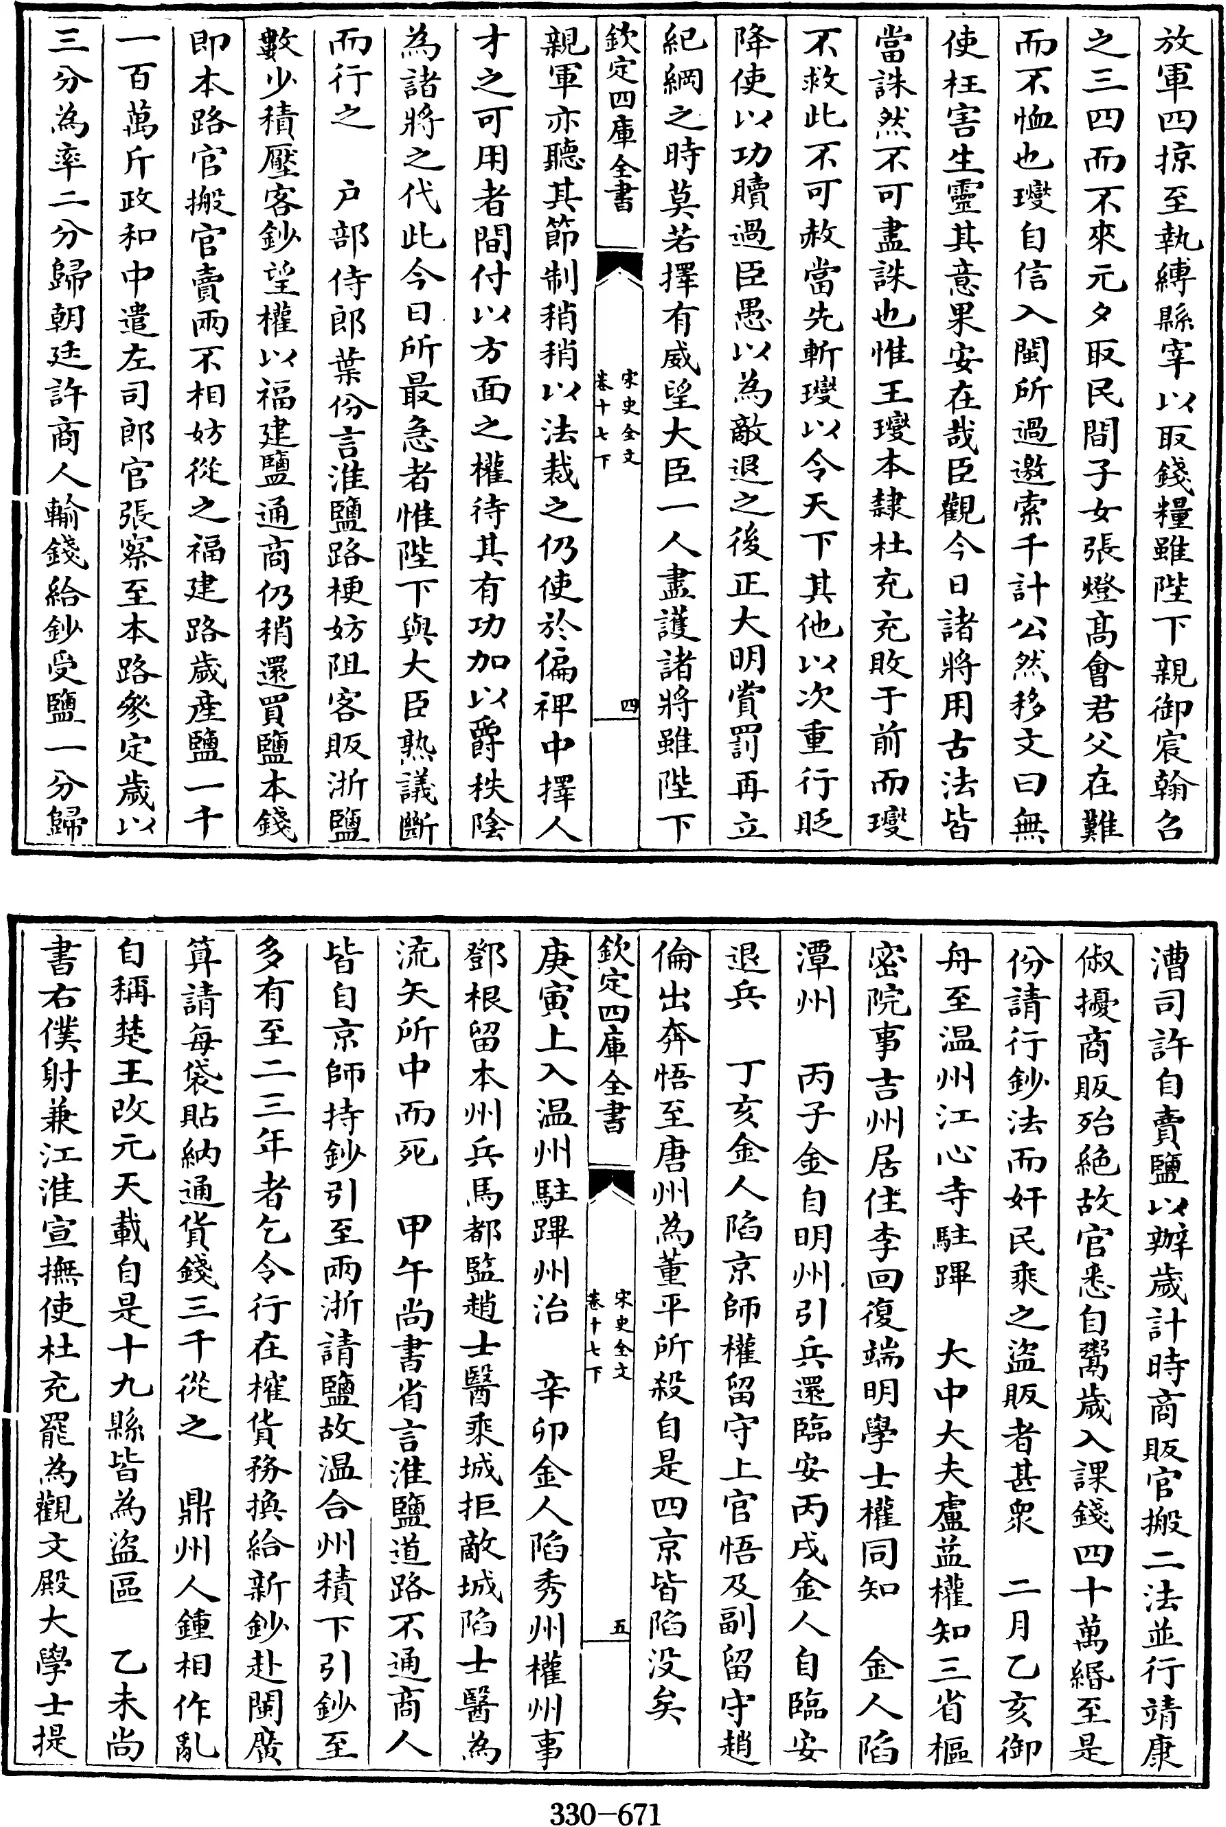 放軍四掠至執縛縣宰以取錢糧雖陛下親御宸翰召
之三四而不來元夕取民間子女張燈髙會君父在難
而不恤也𤫉自信入閩所過邀索千計公然移文曰無
使枉害生靈其意果安在哉臣觀今日諸將用古法皆
當誅然不可盡誅也惟王𤫉本隸杜充充敗于前而𤫉
不救此不可赦當先斬𤫉以令天下其他以次重行貶
降使以功贖過臣愚以為敵退之後正大明賞罰再立
紀綱之時莫若擇有威望大臣一人盡護諸將雖陛下
欽定四庫全書
宋史全文
卷十七下
四
親軍亦聽其節制稍稍以法裁之仍使於偏裨中擇人
才之可用者間付以方面之權待其有功加以爵秩陰
為諸將之代此今日所最急者惟陛下與大臣熟議斷
而行之 戶部侍郎葉份言淮鹽路梗妨阻客販浙鹽
數少積壓客鈔望權以福建鹽通商仍稍還買鹽本錢
即本路官搬官賣兩不相妨從之福建路歲產鹽一千
一百萬斤政和中遣左司郎官張察至本路參定歲以
三分為率二分歸朝廷許商人輸錢給鈔受鹽一分歸
漕司許自賣鹽以辦歲計時商販官搬二法並行靖康
俶擾商販殆絶故官悉自鬻歲入課錢四十萬緡至是
份請行鈔法而奸民乘之盜販者甚衆 二月乙亥御
舟至温州江心寺駐蹕 大中大夫盧益權知三省樞
密院事吉州居住李回復端明學士權同知 金人陷
潭州 丙子金自明州引兵還臨安丙戌金人自臨安
退兵 丁亥金人陷京師權留守上官悟及副留守趙
倫出奔悟至唐州為董平所殺自是四京皆陷没矣
欽定四庫全書
宋史全文
卷十七下
五
庚寅上入温州駐蹕州治 辛卯金人陷秀州權州事
鄧根留本州兵馬都監趙士醫乘城拒敵城陷士醫為
流矢所中而死 甲午尚書省言淮鹽道路不通商人
皆自京師持鈔引至兩浙請鹽故温台州積下引鈔至
多有至二三年者乞令行在榷貨務換給新鈔赴閩廣
算請每袋貼納通貨錢三千從之 鼎州人鍾相作亂
自稱楚王改元天載自是十九縣皆為盜區 乙未尚
書右僕射兼江淮宣撫使杜充罷為觀文殿大學士提
330-671